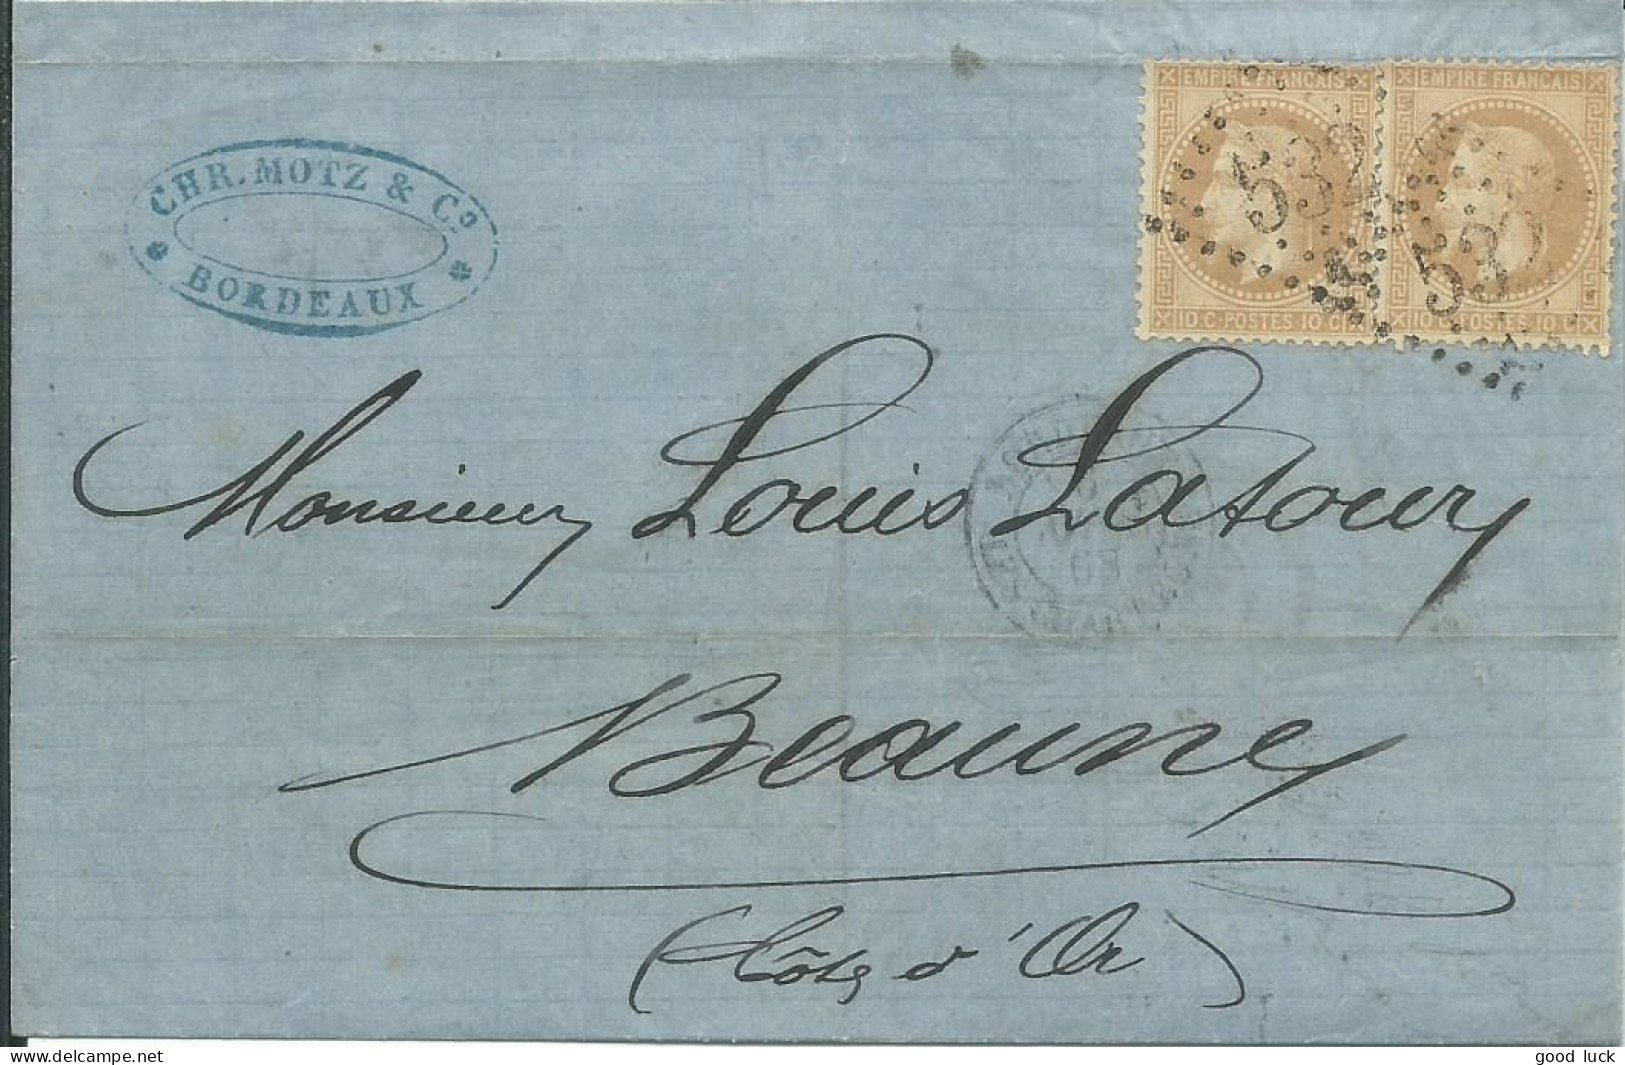 CHR. MOTZ & Co
BORDEAUX
EMPIRE FRANÇAIS
EMPIRE FRANÇAIS
532
532
10 C. POSTES 10 C.
10 C. POSTES 10 C.
Monsieur Louis Latour
Beaune
(Côte d'Or)
www.delcampe.net
good luck